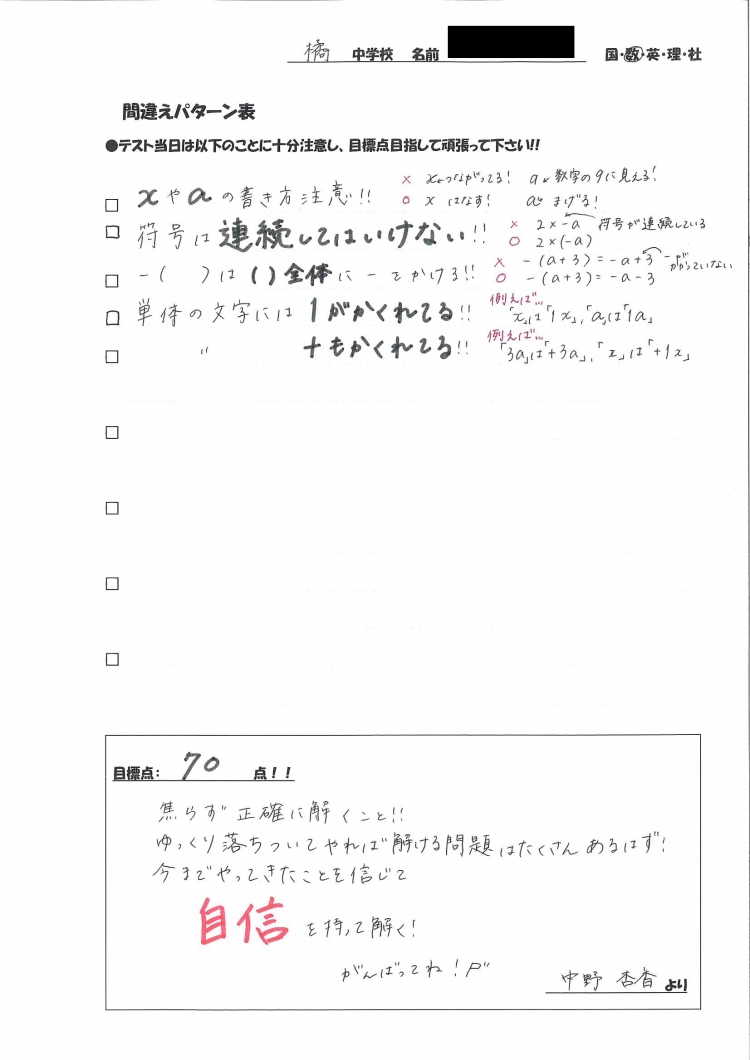 橘 中学校 名前 国・数・英・理・社
間違えパターン表
●テスト当日は以下のことに十分注意し、目標点目指して頑張って下さい!!
□ xやaの書き方注意!! × x←つながってる! a←数字の9に見える!
○ x はなす! a まげる!
□ 符号は連続してはいけない!! × 2×-a 符号が連続している
○ 2×(-a)
□ -( )は( )全体に-をかける!! × -(a+3)=-a+3 -がかかっていない
○ -(a+3)=-a-3
□ 単体の文字には1がかくれてる!! 例えば…「x」は「1x」,「a」は「1a」
□ 〃 +もかくれてる!! 例えば…「3a」は「+3a」,「x」は「+1x」
□
□
□
□
目標点: 70 点!!
焦らず正確に解くこと!!
ゆっくり落ちついてやれば解ける問題はたくさんあるはず!
今までやってきたことを信じて
自信を持って解く!
がんばってね!
中野 杏香 より